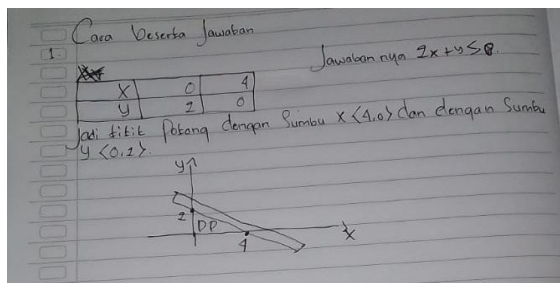 Cara beserta Jawaban
1.
Jawaban nya 2x+y≤8.
X 0 4
y 2 0
Jadi titik Potong dengan Sumbu x <4,0> dan dengan Sumbu
y <0,2>.
y
2
DP
4
X